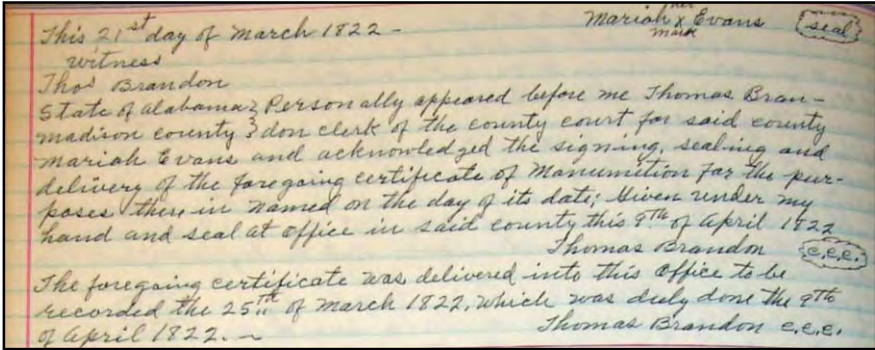 This 21st day of March 1822 - Mariah her x mark Evans (seal)
witness
Thos Brandon
State of Alabama } Personally appeared before me Thomas Bran-
Madison county } don clerk of the county court for said county
Mariah Evans and acknowledged the signing, sealing and
delivery of the foregoing certificate of Manumition for the pur-
poses therein named on the day of its date; Given under my
hand and seal at office in said county this 9th of April 1822
Thomas Brandon (c.c.c.)
The foregoing certificate was delivered into this office to be
recorded the 25th of March 1822, which was duly done the 9th
of April 1822. Thomas Brandon c.c.c.